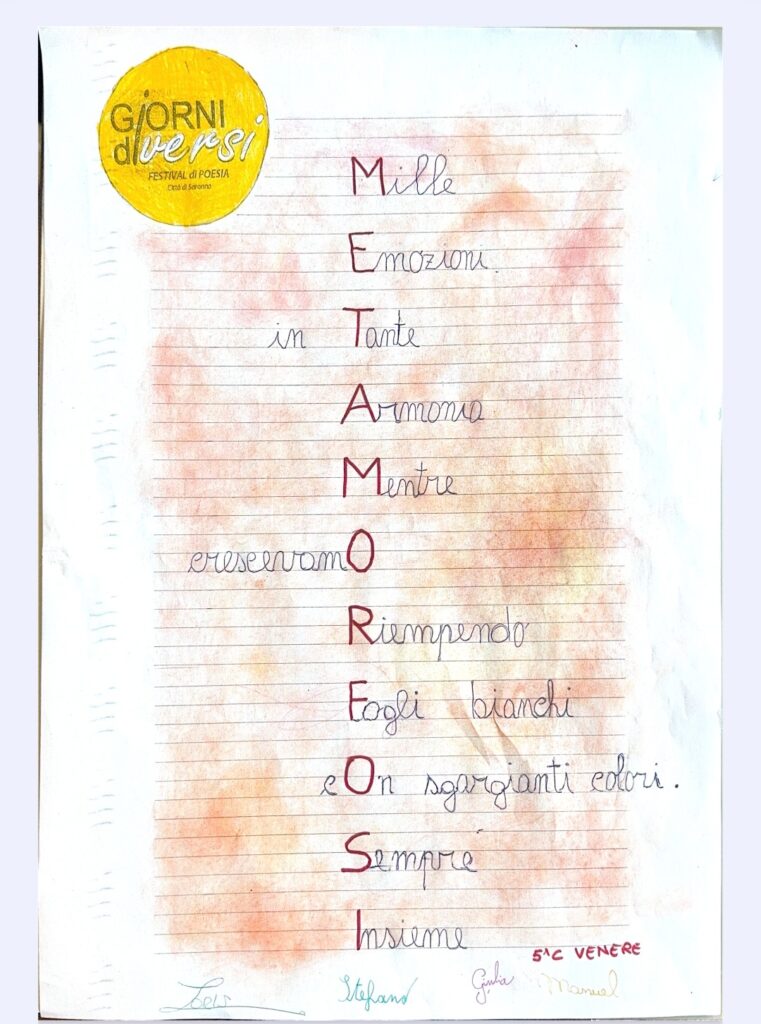 GiORNI
diversi
FESTIVAL di POESIA
Città di Saronno
Mille
Emozioni.
in Tante
Armonia
Mentre
crescevamO
Riempendo
Fogli bianchi
cOn sgargianti colori.
Sempre
Insieme
5^C VENERE
Stefano Giulia Manuel